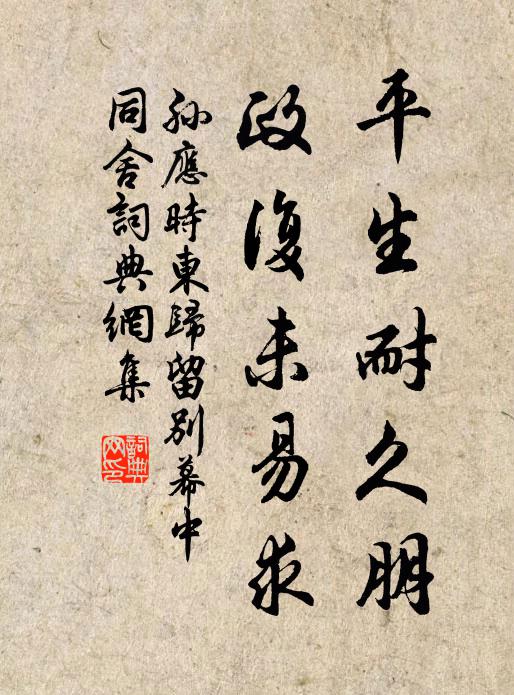 平生耐久朋
政復未易求
孫應時東歸留別幕中
同舍詞典網集
詞典网印